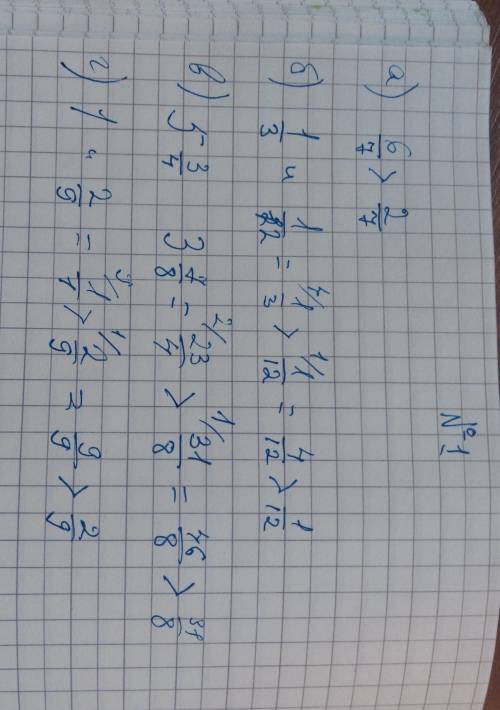 №1
а) 6/7 > 2/7
б) 1/3 и 1/12 = 4/ 1/3 > 1/ 1/12 = 4/12 > 1/12
в) 5 3/4 3 7/8 = 2/ 23/4 > 1/ 31/8 = 46/8 > 31/8
г) 1 и 2/9 = 9/ 1/1 > 1/ 2/9 = 9/9 > 2/9